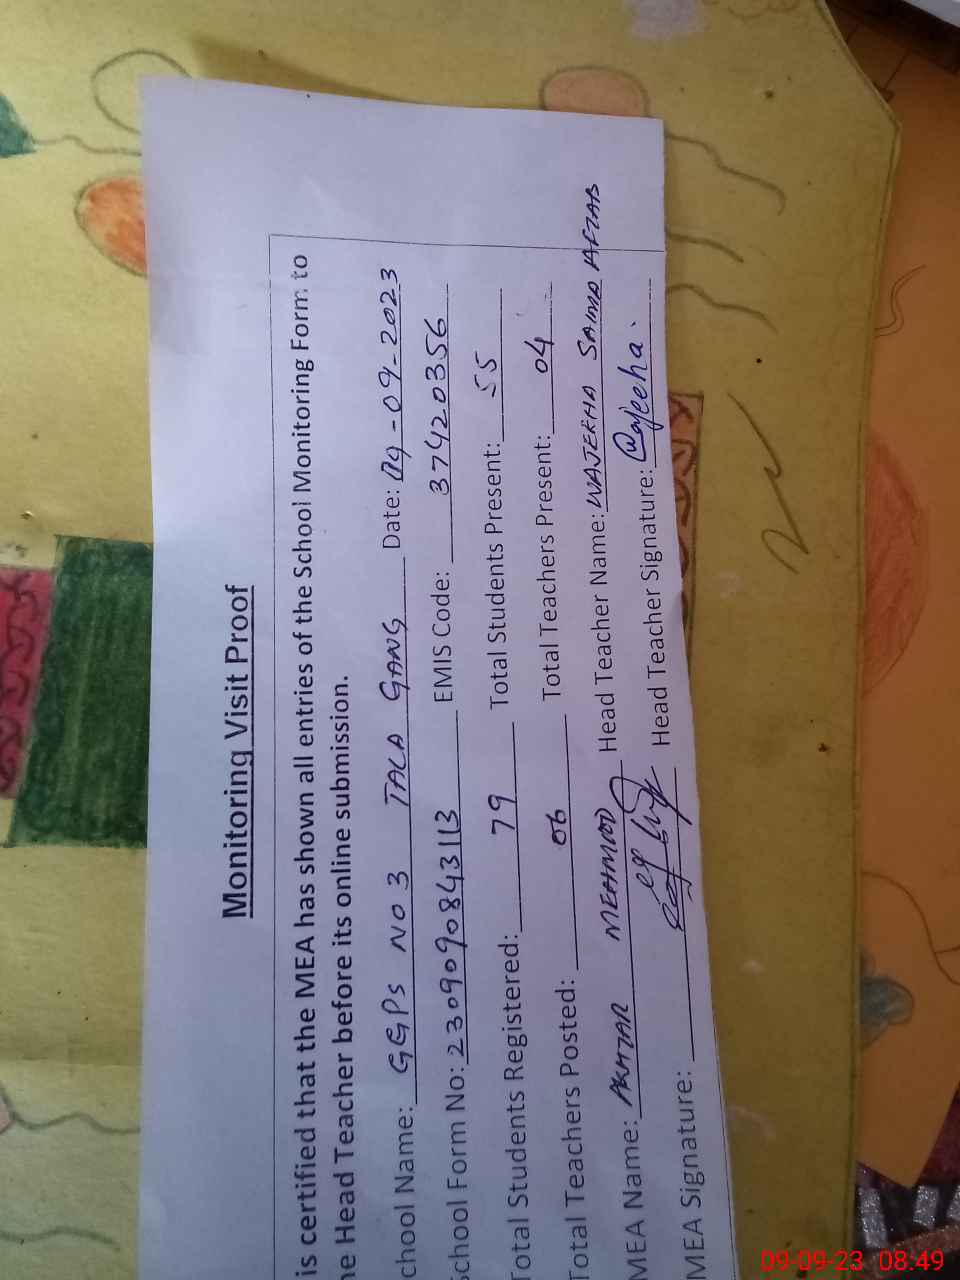 Monitoring Visit Proof
is certified that the MEA has shown all entries of the School Monitoring Form to
he Head Teacher before its online submission.
chool Name: GGPS NO 3 TALA GANG Date: 09-09-2023
School Form No: 2309090843113 EMIS Code: 37420356
Total Students Registered: 79 Total Students Present: 55
Total Teachers Posted: 06 Total Teachers Present: 04
MEA Name: AKHTAR MEAHMOOD Head Teacher Name: WAJEEHA SAIMA AFTAB
MEA Signature: Head Teacher Signature: Wajeeha.
09-09-23 08:49